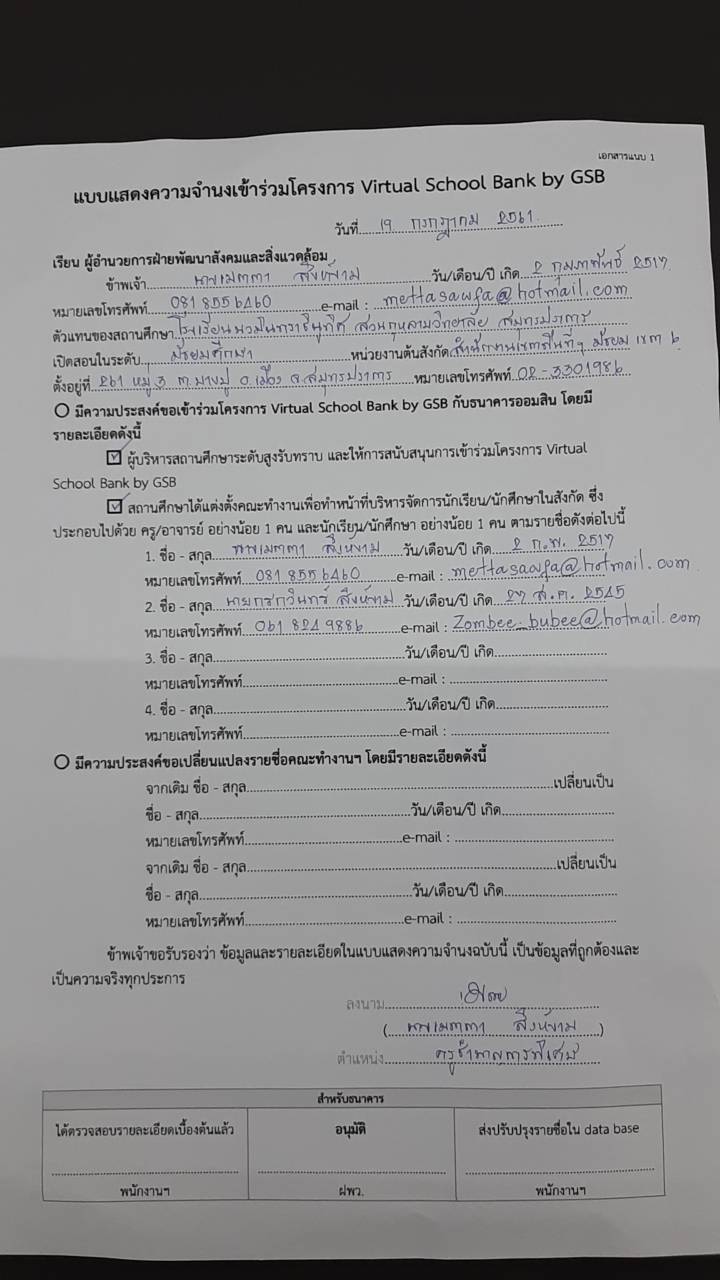 เอกสารแนบ 1
แบบแสดงความจำนงเข้าร่วมโครงการ Virtual School Bank by GSB
วันที่ 19 กรกฎาคม 2561
เรียน ผู้อำนวยการฝ่ายพัฒนาสังคมและสิ่งแวดล้อม
ข้าพเจ้า นางเมตตา สิงห์งาม วัน/เดือน/ปี เกิด 2 กุมภาพันธ์ 2517
หมายเลขโทรศัพท์ 081 8556460 e-mail : mettasawfa@hotmail.com
ตัวแทนของสถานศึกษา โรงเรียนนวมินทราชินูทิศ สวนกุหลาบวิทยาลัย สมุทรปราการ
เปิดสอนในระดับ มัธยมศึกษา หน่วยงานต้นสังกัด สำนักงานเขตพื้นที่ฯ มัธยม เขต 6
ตั้งอยู่ที่ 261 หมู่ 3 ต.บางปู อ.เมือง จ.สมุทรปราการ หมายเลขโทรศัพท์ 02-3301986
มีความประสงค์ขอเข้าร่วมโครงการ Virtual School Bank by GSB กับธนาคารออมสิน โดยมี
รายละเอียดดังนี้
ผู้บริหารสถานศึกษาระดับสูงรับทราบ และให้การสนับสนุนการเข้าร่วมโครงการ Virtual
School Bank by GSB
สถานศึกษาได้แต่งตั้งคณะทำงานเพื่อทำหน้าที่บริหารจัดการนักเรียน/นักศึกษาในสังกัด ซึ่ง
ประกอบไปด้วย ครู/อาจารย์ อย่างน้อย 1 คน และนักเรียน/นักศึกษา อย่างน้อย 1 คน ตามรายชื่อดังต่อไปนี้
1. ชื่อ - สกุล นางเมตตา สิงห์งาม วัน/เดือน/ปี เกิด 2 ก.พ. 2517
หมายเลขโทรศัพท์ 081 8556460 e-mail : mettasawfa@hotmail.com
2. ชื่อ - สกุล นายกรกวินทร์ สิงห์งาม วัน/เดือน/ปี เกิด 27 ส.ค. 2545
หมายเลขโทรศัพท์ 061 8249886 e-mail : Zombee-bubee@hotmail.com
3. ชื่อ - สกุล วัน/เดือน/ปี เกิด
หมายเลขโทรศัพท์ e-mail :
4. ชื่อ - สกุล วัน/เดือน/ปี เกิด
หมายเลขโทรศัพท์ e-mail :
มีความประสงค์ขอเปลี่ยนแปลงรายชื่อคณะทำงานฯ โดยมีรายละเอียดดังนี้
จากเดิม ชื่อ - สกุล เปลี่ยนเป็น
ชื่อ - สกุล วัน/เดือน/ปี เกิด
หมายเลขโทรศัพท์ e-mail :
จากเดิม ชื่อ - สกุล เปลี่ยนเป็น
ชื่อ - สกุล วัน/เดือน/ปี เกิด
หมายเลขโทรศัพท์ e-mail :
ข้าพเจ้าขอรับรองว่า ข้อมูลและรายละเอียดในแบบแสดงความจำนงฉบับนี้ เป็นข้อมูลที่ถูกต้องและ
เป็นความจริงทุกประการ
ลงนาม
( นางเมตตา สิงห์งาม )
ตำแหน่ง ครูชำนาญการพิเศษ
สำหรับธนาคาร
ได้ตรวจสอบรายละเอียดเบื้องต้นแล้ว อนุมัติ ส่งปรับปรุงรายชื่อใน data base
พนักงานฯ ฝพว. พนักงานฯ